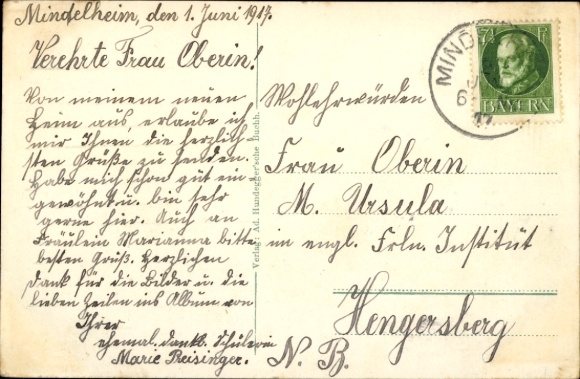 Mindelheim, den 1. Juni 1917.
Verehrte Frau Oberin!
Von meinem neuen
Heim aus, erlaube ich
mir Ihnen die herzlich-
sten Grüße zu senden.
Habe mich schon gut ein-
gewöhnt u. bin sehr
gerne hier. Auch an
Fräulein Marianna bitte
besten Gruß. Herzlichen
Dank für die Bilder u. die
lieben Zeilen ins Album von
Ihrer
ehemal. dankb. Schülerin
Marie Preisinger.
Verlag: Ad. Hundegger'sche Buchh.
Wohlehrwürden
Frau Oberin
M. Ursula
im engl. Frln. Institut
Hengersberg
N. B.
MIND
17
7½ Pf
BAYERN